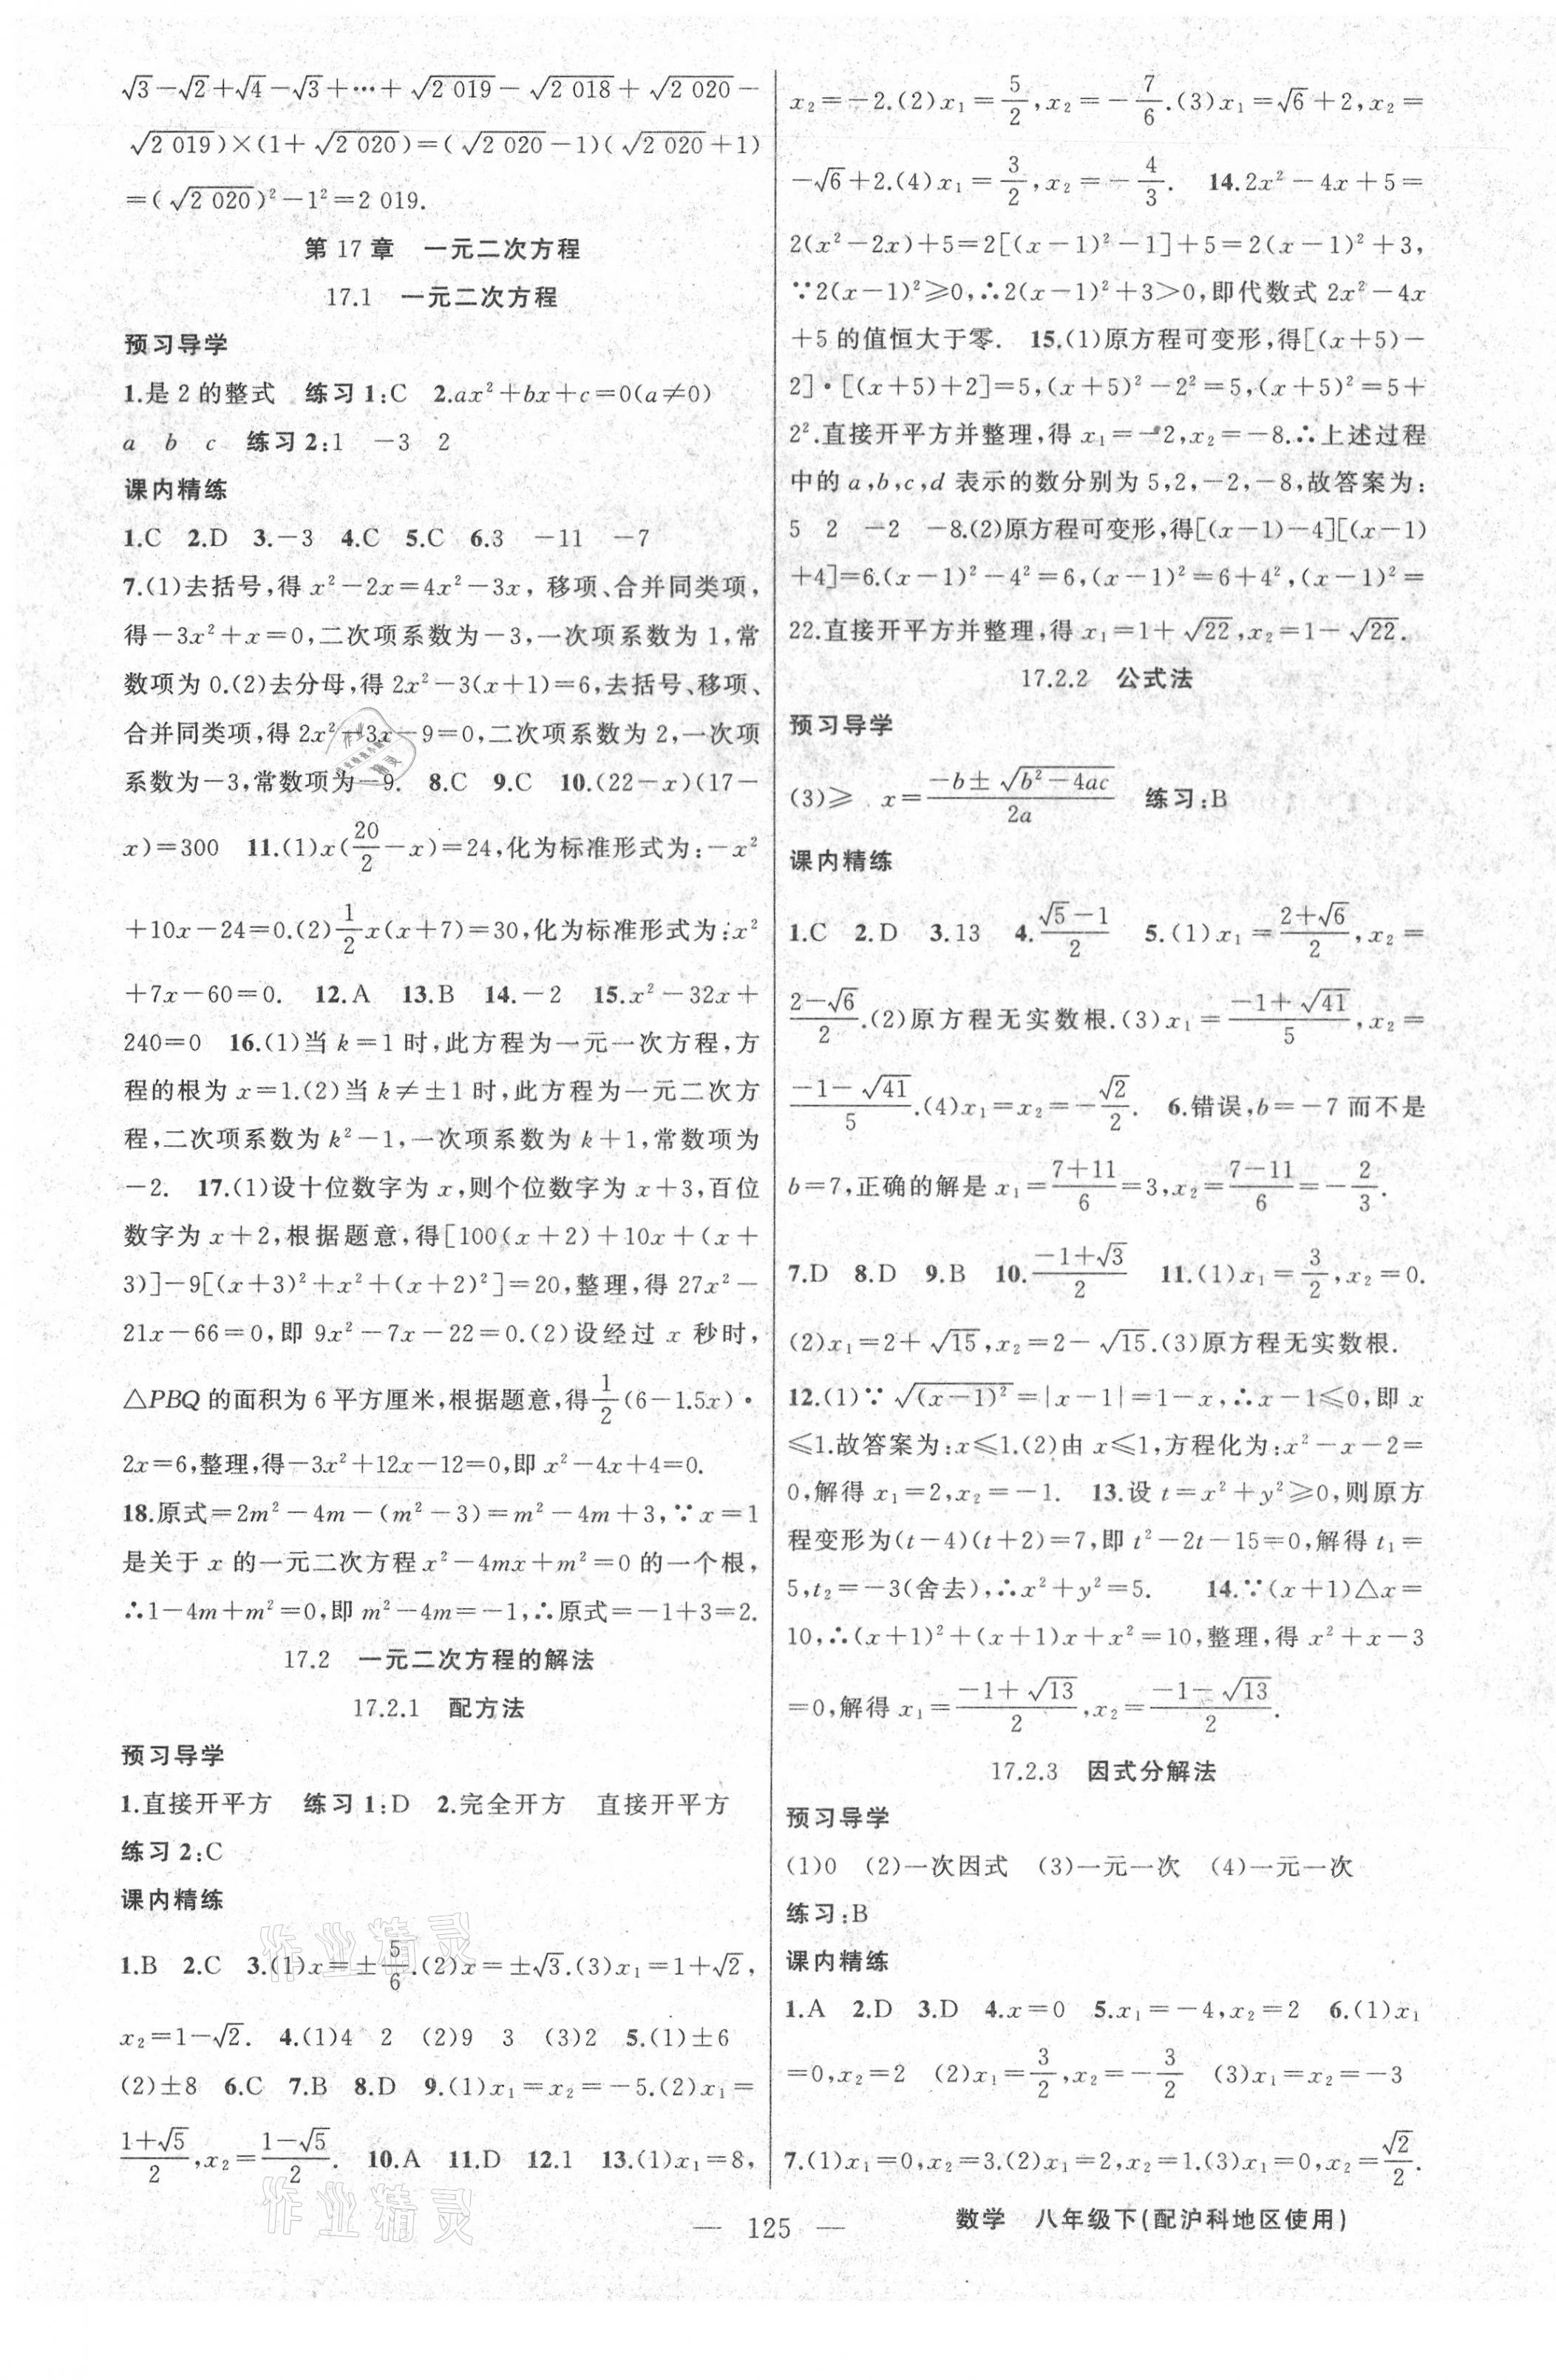 √3－√2＋√4－√3＋…＋√2 019－√2 018＋√2 020－
√2 019)×(1＋√2 020)＝(√2 020－1)(√2 020＋1)
＝(√2 020)²－1²＝2 019.
第17章　一元二次方程
17.1　一元二次方程
预习导学
1.是2的整式　练习1:C　2.ax²＋bx＋c＝0(a≠0)
a　b　c　练习2:1　－3　2
课内精练
1.C　2.D　3.－3　4.C　5.C　6.3　－11　－7
7.(1)去括号,得x²－2x＝4x²－3x, 移项、合并同类项,
得－3x²＋x＝0,二次项系数为－3,一次项系数为1,常
数项为0.(2)去分母,得2x²－3(x＋1)＝6,去括号、移项、
合并同类项,得2x²－3x－9＝0,二次项系数为2,一次项
系数为－3,常数项为－9.　8.C　9.C　10.(22－x)(17－
x)＝300　11.(1)x(20/2－x)＝24,化为标准形式为:－x²
＋10x－24＝0.(2)1/2x(x＋7)＝30,化为标准形式为:x²
＋7x－60＝0.　12.A　13.B　14.－2　15.x²－32x＋
240＝0　16.(1)当k＝1时,此方程为一元一次方程,方
程的根为x＝1.(2)当k≠±1时,此方程为一元二次方
程,二次项系数为k²－1,一次项系数为k＋1,常数项为
－2.　17.(1)设十位数字为x,则个位数字为x＋3,百位
数字为x＋2,根据题意,得[100(x＋2)＋10x＋(x＋
3)]－9[(x＋3)²＋x²＋(x＋2)²]＝20,整理,得27x²－
21x－66＝0,即9x²－7x－22＝0.(2)设经过x秒时,
△PBQ的面积为6平方厘米,根据题意,得1/2(6－1.5x)·
2x＝6,整理,得－3x²＋12x－12＝0,即x²－4x＋4＝0.
18.原式＝2m²－4m－(m²－3)＝m²－4m＋3,∵x＝1
是关于x的一元二次方程x²－4mx＋m²＝0的一个根,
∴1－4m＋m²＝0,即m²－4m＝－1,∴原式＝－1＋3＝2.
17.2　一元二次方程的解法
17.2.1　配方法
预习导学
1.直接开平方　练习1:D　2.完全开方　直接开平方
练习2:C
课内精练
1.B　2.C　3.(1)x＝±5/6.(2)x＝±√3.(3)x₁＝1＋√2,
x₂＝1－√2.　4.(1)4　2　(2)9　3　(3)2　5.(1)±6
(2)±8　6.C　7.B　8.D　9.(1)x₁＝x₂＝－5.(2)x₁＝
(1＋√5)/2,x₂＝(1－√5)/2.　10.A　11.D　12.1　13.(1)x₁＝8,
x₂＝－2.(2)x₁＝5/2,x₂＝－7/6.(3)x₁＝√6＋2,x₂＝
－√6＋2.(4)x₁＝3/2,x₂＝－4/3.　14.2x²－4x＋5＝
2(x²－2x)＋5＝2[(x－1)²－1]＋5＝2(x－1)²＋3,
∵2(x－1)²≥0,∴2(x－1)²＋3＞0,即代数式2x²－4x
＋5的值恒大于零.　15.(1)原方程可变形,得[(x＋5)－
2]·[(x＋5)＋2]＝5,(x＋5)²－2²＝5,(x＋5)²＝5＋
2².直接开平方并整理,得x₁＝－2,x₂＝－8.∴上述过程
中的a,b,c,d表示的数分别为5,2,－2,－8,故答案为:
5　2　－2　－8.(2)原方程可变形,得[(x－1)－4][(x－1)
＋4]＝6.(x－1)²－4²＝6,(x－1)²＝6＋4²,(x－1)²＝
22.直接开平方并整理,得x₁＝1＋√22,x₂＝1－√22.
17.2.2　公式法
预习导学
(3)≥　x＝(－b±√(b²－4ac))/2a　练习:B
课内精练
1.C　2.D　3.13　4.(√5－1)/2　5.(1)x₁＝(2＋√6)/2,x₂＝
(2－√6)/2.(2)原方程无实数根.(3)x₁＝(－1＋√41)/5,x₂＝
(－1－√41)/5.(4)x₁＝x₂＝－√2/2.　6.错误,b＝－7而不是
b＝7,正确的解是x₁＝(7＋11)/6＝3,x₂＝(7－11)/6＝－2/3.
7.D　8.D　9.B　10.(－1＋√3)/2　11.(1)x₁＝3/2,x₂＝0.
(2)x₁＝2＋√15,x₂＝2－√15.(3)原方程无实数根.
12.(1)∵√(x－1)²＝|x－1|＝1－x,∴x－1≤0,即x
≤1.故答案为:x≤1.(2)由x≤1,方程化为:x²－x－2＝
0,解得x₁＝2,x₂＝－1.　13.设t＝x²＋y²≥0,则原方
程变形为(t－4)(t＋2)＝7,即t²－2t－15＝0,解得t₁＝
5,t₂＝－3(舍去),∴x²＋y²＝5.　14.∵(x＋1)△x＝
10,∴(x＋1)²＋(x＋1)x＋x²＝10,整理,得x²＋x－3
＝0,解得x₁＝(－1＋√13)/2,x₂＝(－1－√13)/2.
17.2.3　因式分解法
预习导学
(1)0　(2)一次因式　(3)一元一次　(4)一元一次
练习:B
课内精练
1.A　2.D　3.D　4.x＝0　5.x₁＝－4,x₂＝2　6.(1)x₁
＝0,x₂＝2　(2)x₁＝3/2,x₂＝－3/2　(3)x₁＝x₂＝－3
7.(1)x₁＝0,x₂＝3.(2)x₁＝2,x₂＝1.(3)x₁＝0,x₂＝√2/2.
— 125 —
数学　八年级下(配沪科地区使用)
作业精灵
作业精灵